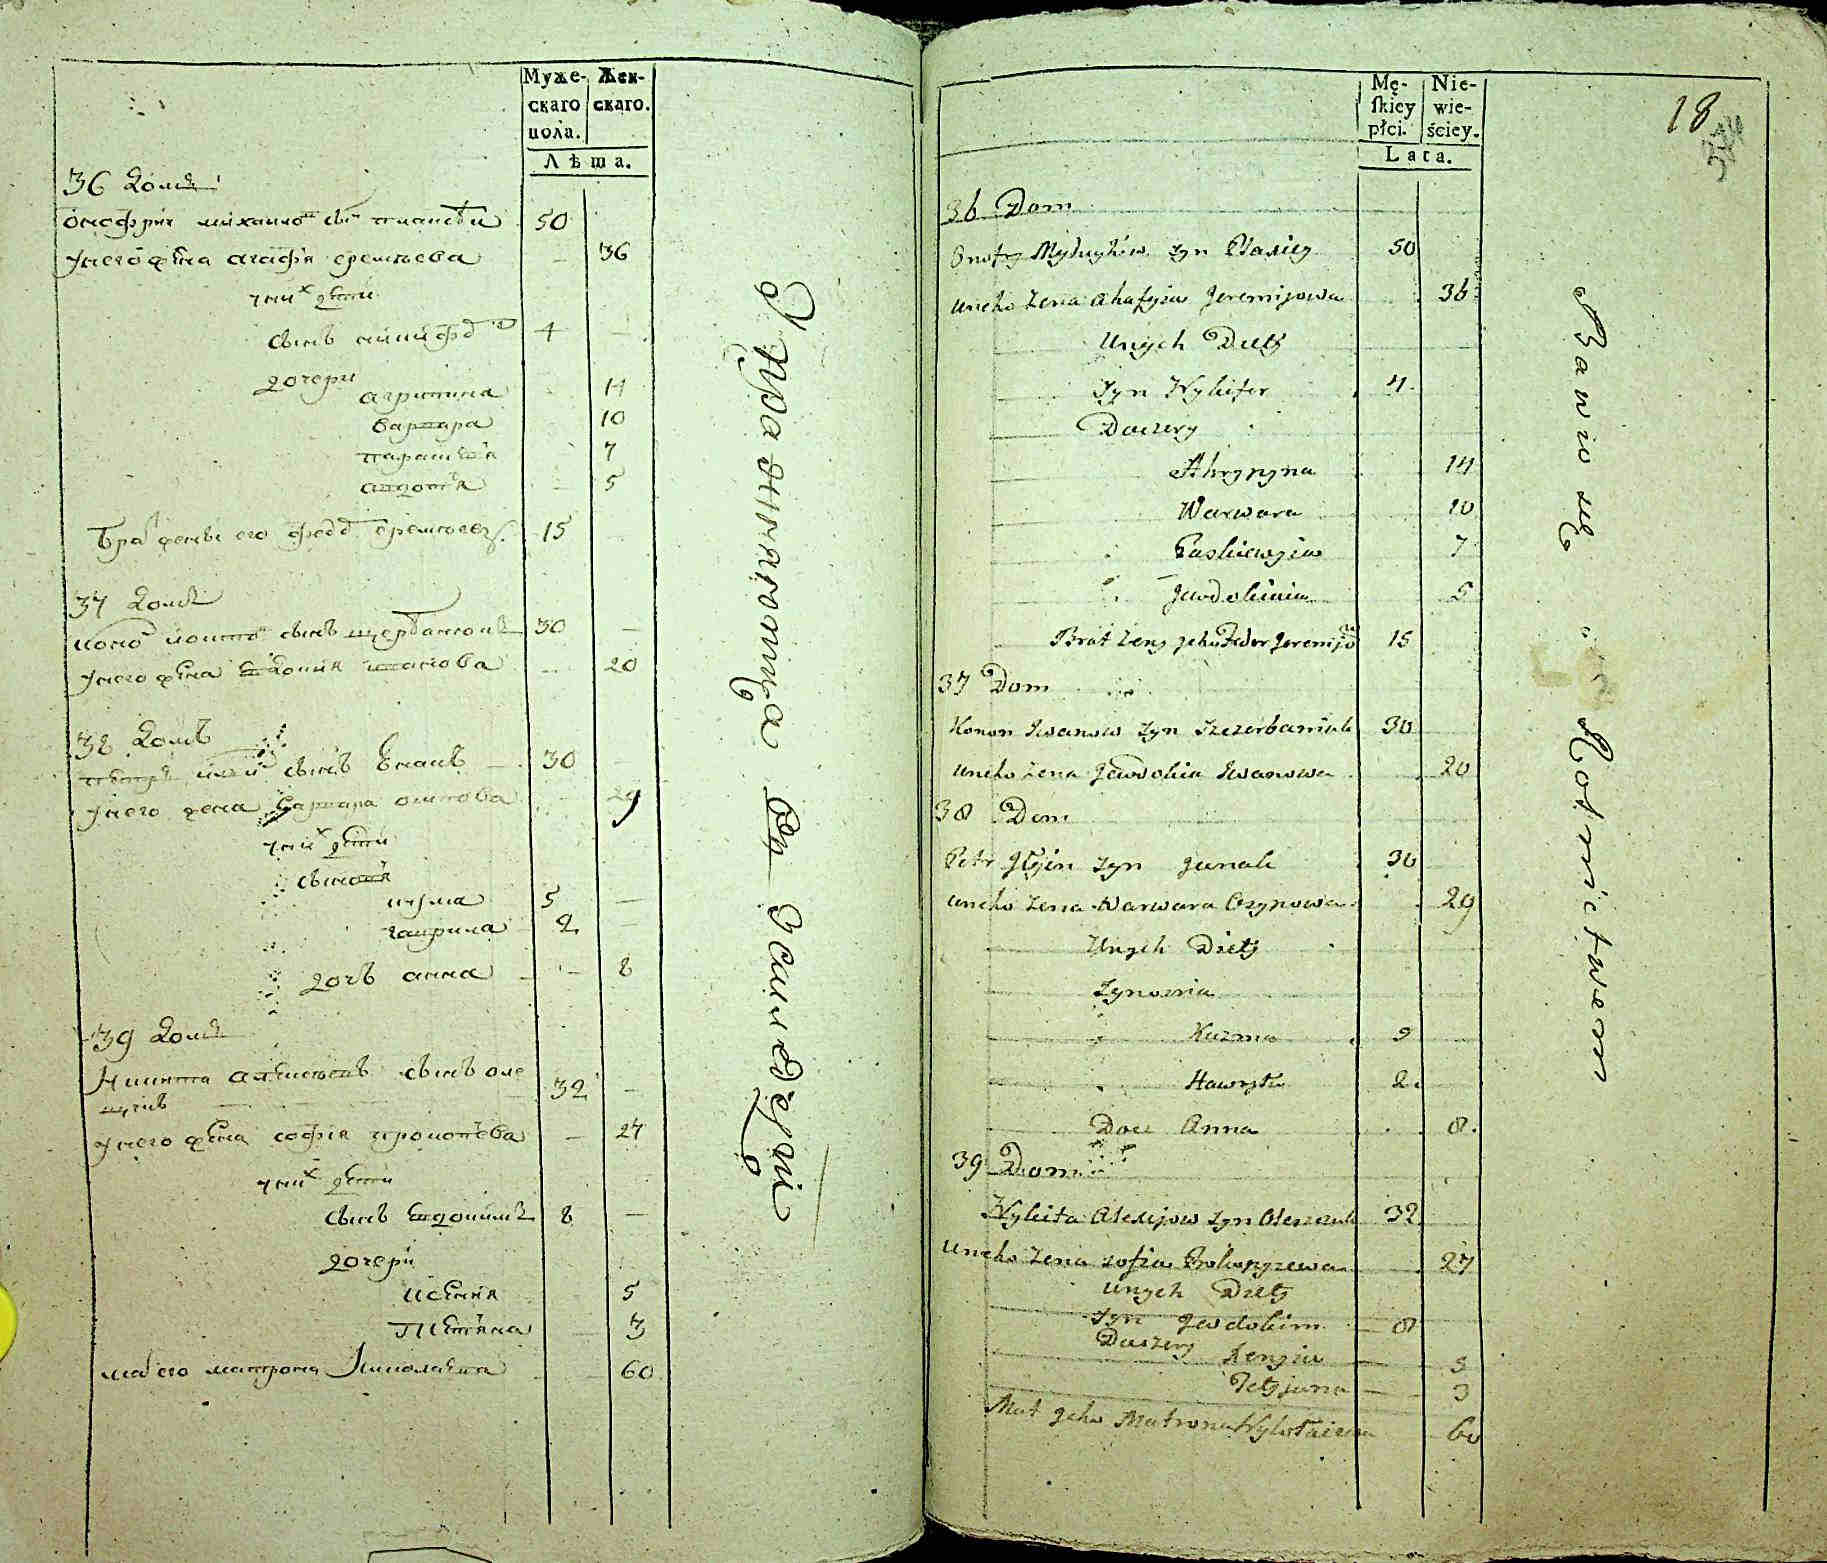 Муже-
скаго
пола.
Жен-
скаго.
Лѣта.
36 Домъ
Онофрий михайловъ сынъ 50
У него жена агафия еремѣева 36
у них дети
сынъ никифоръ 4
дочери
агрипина 14
варвара 10
7
авдотья 5
Братъ жены его федоръ еремѣевъ 15
37 Домъ
сынъ щербанюкъ 30
У него жена Евдокия иванова 20
38 Домъ
петръ сынъ 30
У него жена варвара осипова 29
у них дети
сыновья
кузма 5
гаврила 2
дочь анна 8
39 Домъ
Никита алексѣевъ сынъ оле
щукъ 32
У него жена софия прокопьева 27
у них дети
сынъ Евдокимъ 8
дочери
ксения 5
татьяна 3
мать его матрона Николаевна 60
Упражняются въ земледелии
Mę-
skiey
płci.
Nie-
wie-
ściey.
Lata.
18
36 Dom
Onofry Mychayłow Syn 50
uneho Zena Ahafyia Jeremijowa 36
Unych Dieti
Syn Nykifer 4
Doczery
Ahrypyna 14
Warwara 10
Paskiewyia 7
Jewdokiia 5
Brat Zeny jeho Fedor Jeremijow 15
37 Dom
Konon Iwanow Syn Szczerbaniuk 30
uneho Zena Jewdokia Iwanowa 20
38 Dom
Petr Syn 30
uneho Zena Warwara Osypowa 29
Unych Dieti
Synowia
Kuzma 5
Hawryło 2
Docz Anna 8
39 Dom
Nykita Alexijow Syn Oleszczuk 32
Uneho Zena Sofia Prokopyiewa 27
unych Dieti
Syn Jewdokim 8
Doczery
Xenyia 5
Tetjana 3
Mat jeho Matrona Nykołaiewa 60
Bawio się Rolnictwem